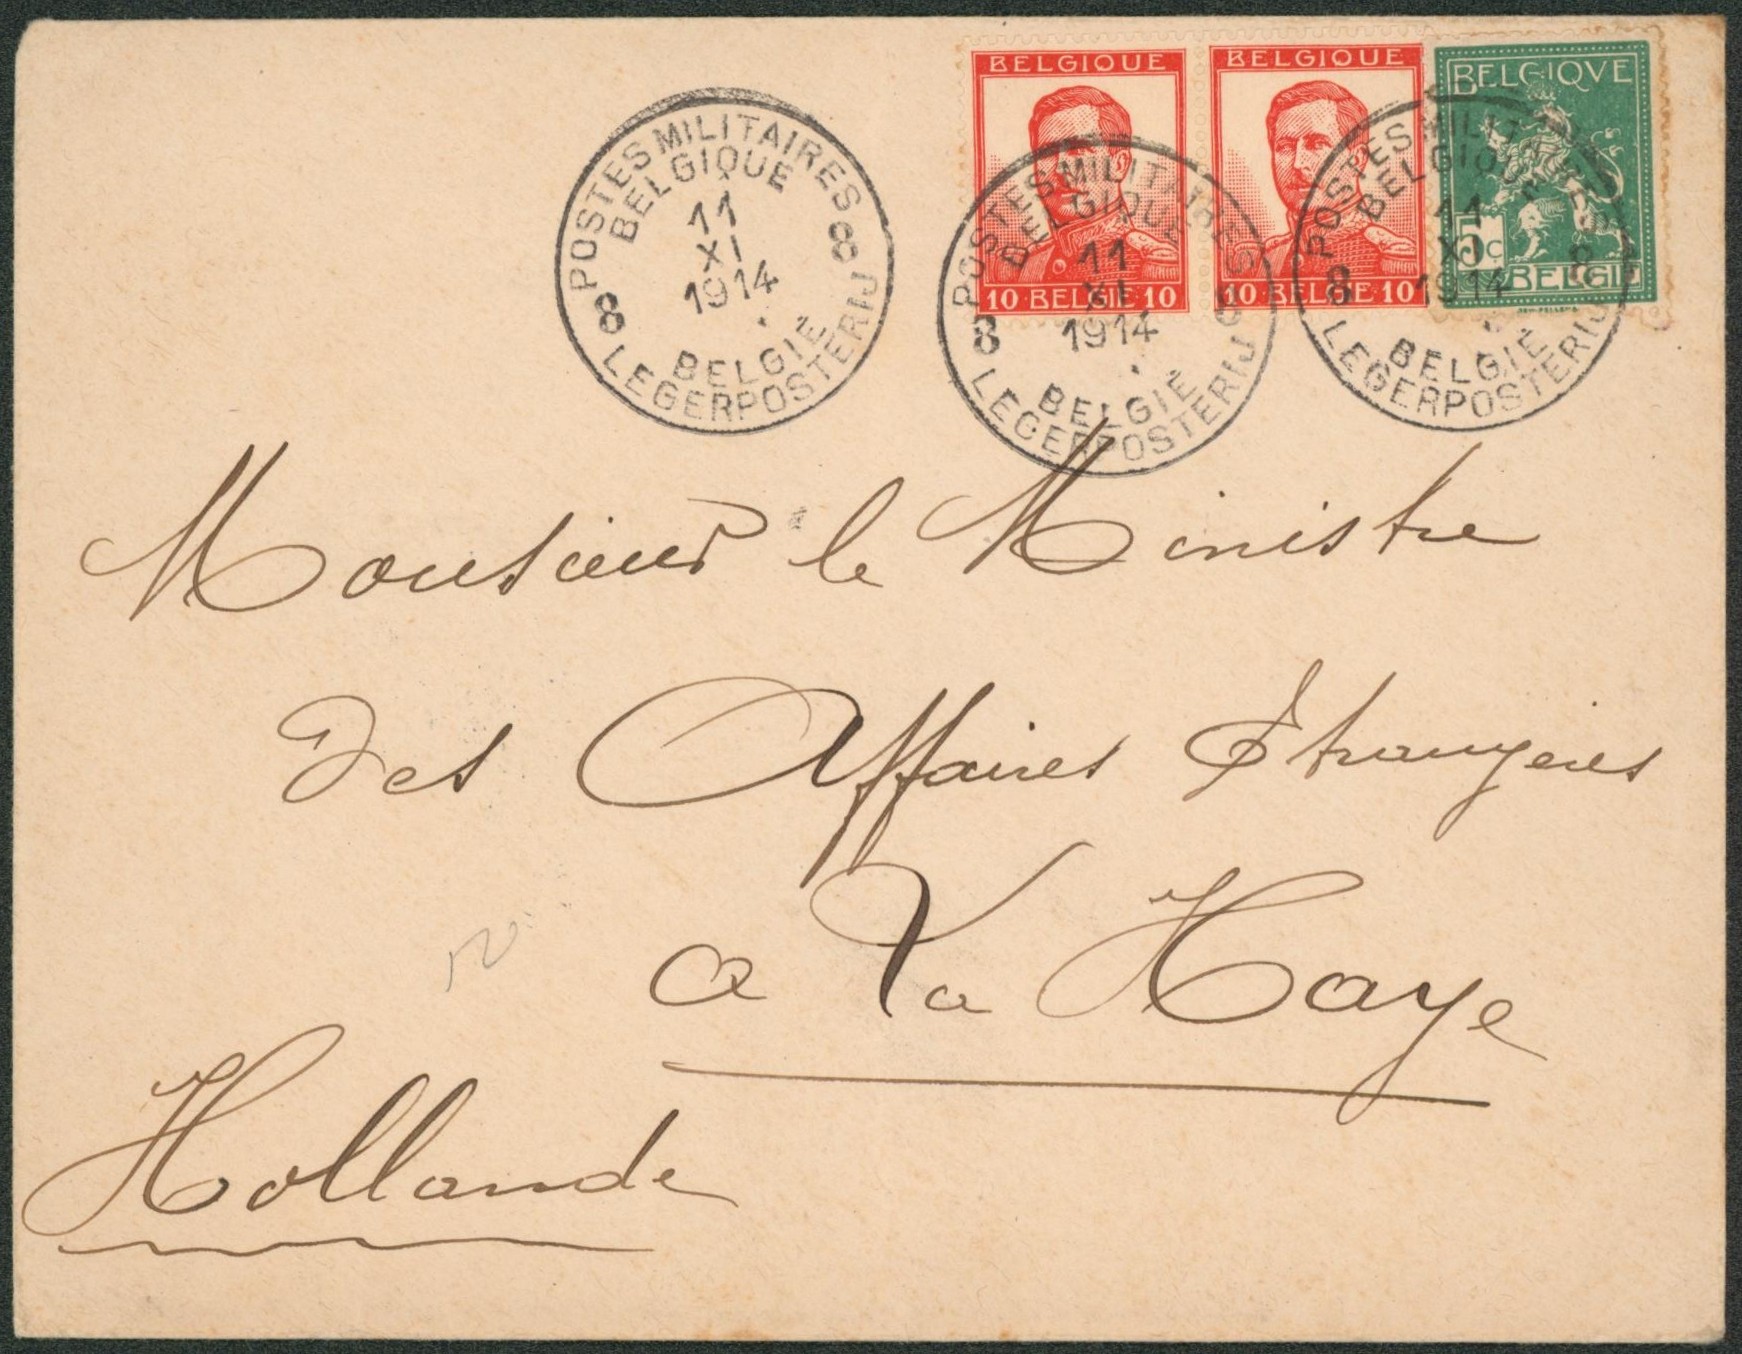 BELGIQUE
10 BELGIE 10
BELGIQUE
10 BELGIE 10
BELGIQVE
5c
BELGIË
POSTES MILITAIRES
BELGIQUE
11
XI
1914
8 8
BELGIË
LEGERPOSTERIJ
POSTES MILITAIRES
BELGIQUE
11
XI
1914
8
BELGIË
LEGERPOSTERIJ
POSTES MILITAIRES
BELGIQUE
11
XI
1914
8 8
BELGIË
LEGERPOSTERIJ
Monsieur le Ministre
des Affaires Etrangères
a La Haye
Hollande